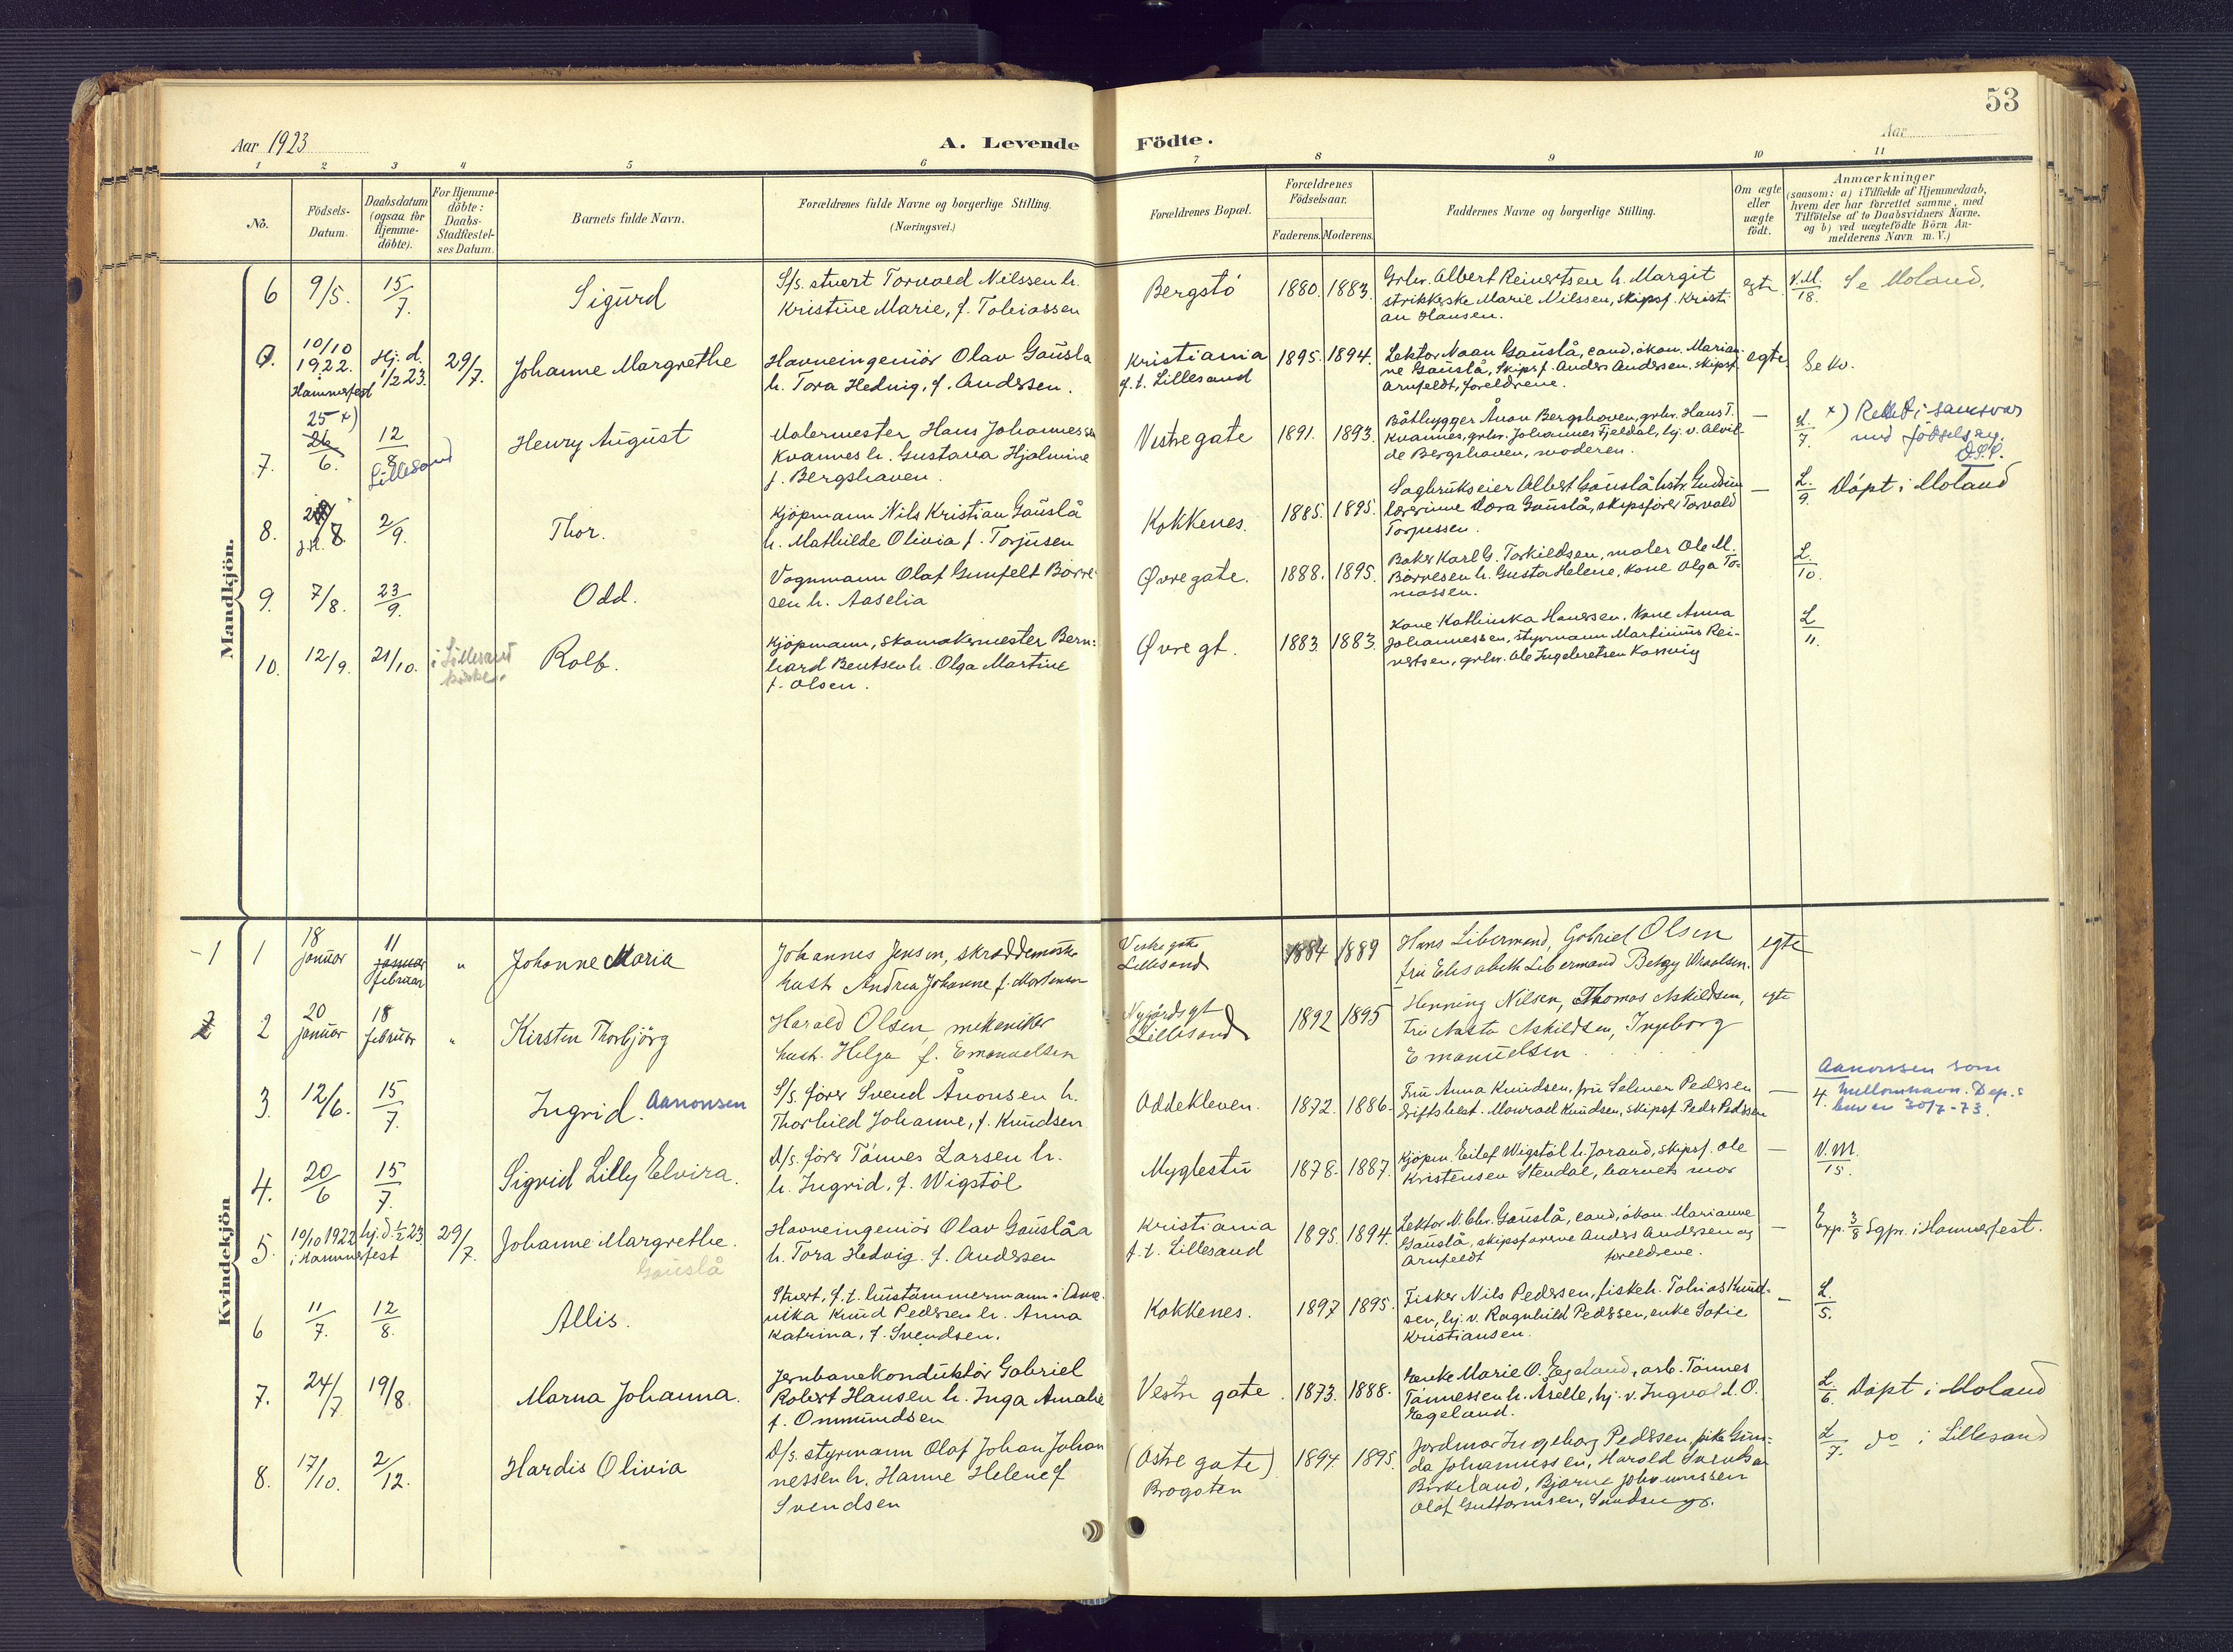 53
Aar 1923
A. Levende Födte.
Aar
1 2 3 4 5 6 7 8 9 10 11
No.
Födsels-Datum.
Daabsdatum (ogsaa för Hjemme-döbte).
For Hjemme-döbte: Daabs-Stadfæstel-ses Datum.
Barnets fulde Navn.
Forældrenes fulde Navne og borgerlige Stilling.
(Næringsvei.)
Forældrenes Bopæl.
Forældrenes Födselsaar.
Faderens. Moderens.
Faddernes Navne og borgerlige Stilling.
Om ægte eller uægte födt.
Anmærkninger
(saasom: a) i Tilfælde af Hjemmedaab,
hvem der har forrettet samme, med
Tilföielse af to Daabsvidners Navne,
og b) ved uægtefödte Börn An-
melderens Navn m. V.)
Mandkjön.
6 9/5. 15/7. Sigurd
S/s. stuert Torvald Nilssen h.
Kristine Marie, f. Tobiassen
Bergstö 1880. 1883.
Grbr. Albert Reinertsen h. Margit
strikkerske Marie Nilssen, skipsf. Kristi-
an Hansen.
egte. V.M. 18. Se Moland.
7. 10/10 1922. Hammerfest Hj. d. 1/2 23. 29/7. Johanne Margrethe
Havneingeniör Olav Gauslå
h. Tora Hedvig, f. Andersen.
Kristiania
f.t. Lillesand
1895. 1894.
Lektor Noan Gauslå, cand. økon. Marian-
ne Gauslå, Skipsf. Anders Andersen, skipsf.
Arnfeldt, foreldrene.
egte. Se kv.
7. 25 x) 26 6. 12/8 Lillesand Henry August
Malermester Hans Johannessen
Kvannes h. Gustava Hjalmine
f. Bergshaven.
Vestregate 1891. 1893.
Båtbygger Ånon Bergshaven, grbr. Hans T.
Kvannes, grbr. Johannes Fjeldal, hj. v. Alvil-
de Bergshaven, moderen.
— L. 7. x) Rettet i samsvar
med födselsreg.
8. 8 2/9. Thor.
Kjöpmann Nils Kristian Gauslå
h. Mathilde Olivia f. Torjusen
Kokkenes. 1885. 1895.
Sagbrukseier Albert Gauslå hstr. Gudrun
lærerinne Dora Gauslå, skipsförer Torvald
Torjussen.
— L. 9. Döpt i Moland
9. 7/8. 23/9. Odd.
Vognmann Olaf Gunfelt Börre-
sen h. Aaselia
Øvregate. 1888. 1895.
Baker Karl G. Torkildsen, maler Ole M.
Börresen h. Gusta Helene, Kone Olga To-
massen.
L. 10.
10. 12/9. 21/10. i Lillesand kirke. Rolf.
Kjöpmann, skomakermester Bern-
hard Bentsen h. Olga Martine
f. Olsen.
Øvre gt. 1883. 1883.
Kone Kathinka Hanssen. Kone Anna
Johannessen, styrmann Martinius Rei-
nertsen, grbr. Ole Ingebretsen Kasevig
L 11.
Kvindekjön
-1 1 18 Januar 11 Januar februar " Johanne Maria
Johannes Jensen, skreddermester
hust. Andrea Johanne f. Mortensen
Vestregate
Lillesand
1884 1889
Hans Libermand, Gabriel Olsen
fru Elisabeth Libermand Betzy
egte
2 2 20 Januar 18 februar " Kirsten Thorbjörg
Harald Olsen, mekaniker
hust. Helga f. Emanuelsen
Nygårdsgt
Lillesand
1892 1895
Henning Nilsen, Thomas Askildsen,
fru Aasta Askildsen, Ingeborg
Emanuelsen.
egte
3. 12/6. 15/7. Ingrid. Aanonsen
S/s. förer Svend Ånonsen h.
Thorhild Johanne, f. Knudsen
Oddekleven. 1872. 1886.
Fru Anna Knudsen, fru Selmer Pedersen
Driftsbest. Monrad Knudsen, skipsf. Peder Pedersen
— 4. Aanonsen som
mellomnavn. Dep.s
brev av 30/7-73.
4. 20/6 15/7. Sigrid Lilly Elvira.
D/s. förer Tönnes Larsen h.
h. Ingrid, f. Wigstöl
Myglestu 1878. 1887.
Kjöpm. Eilef Wigstöl h. Jorand, skipsf. Ole
Kristensen Stendal, barnets mor
— V.M. 15.
5. 10/10 1922 i Hammerfest hj. d. 1/2 23 29/7. Johanne Margrethe.
Gauslå
Havneingeniör Olav Gauslåa
h. Tora Hedvig. f. Andersen
Kristiania
f.t. Lillesand
1895. 1894.
Lektor N. Chr. Gauslå, cand. økon. Marianne
Gauslå, skipsförerne Anders Andersen og
Arnfeldt foreldrene.
— Exp. 3/8 Sgpr. i Hammerfest.
6 11/7. 12/8. Allis.
Stuert, f.t. hustömmermann i Ame-
rika Knud Pedersen h. Anna
Katrina, f. Svendsen.
Kokkenes. 1897 1895.
Fisker Nils Pedersen, fiskeh. Tobias Knud-
sen, hj. v. Ragnhild Pedersen, enke Sofie
Kristiansen.
— L. 5.
7. 24/7 19/8. Marna Johanna.
Jernbanekonduktör Gabriel
Robert Hansen h. Inga Amalie
f. Ommundsen
Vestre gate. 1873. 1888.
Enke Marie O. Egeland, arb. Tönnes
Tönnessen h. Aselle, hj. v. Ingvald O.
Egeland.
L 6. Döpt i Moland
8. 17/10. 2/12. Hardis Olivia
D/s. styrmann Olaf Johan Johan
nessen h. Hanne Helene f
Svendsen
(Østre gate)
Brogaten
1894. 1895.
Jordmor Ingeborg Pedersen, pike Gun-
da Johannessen, Harald Svendsen
Birkeland, Bjarne Johannessen
Olaf Guttormsen,
L 7. do i Lillesand